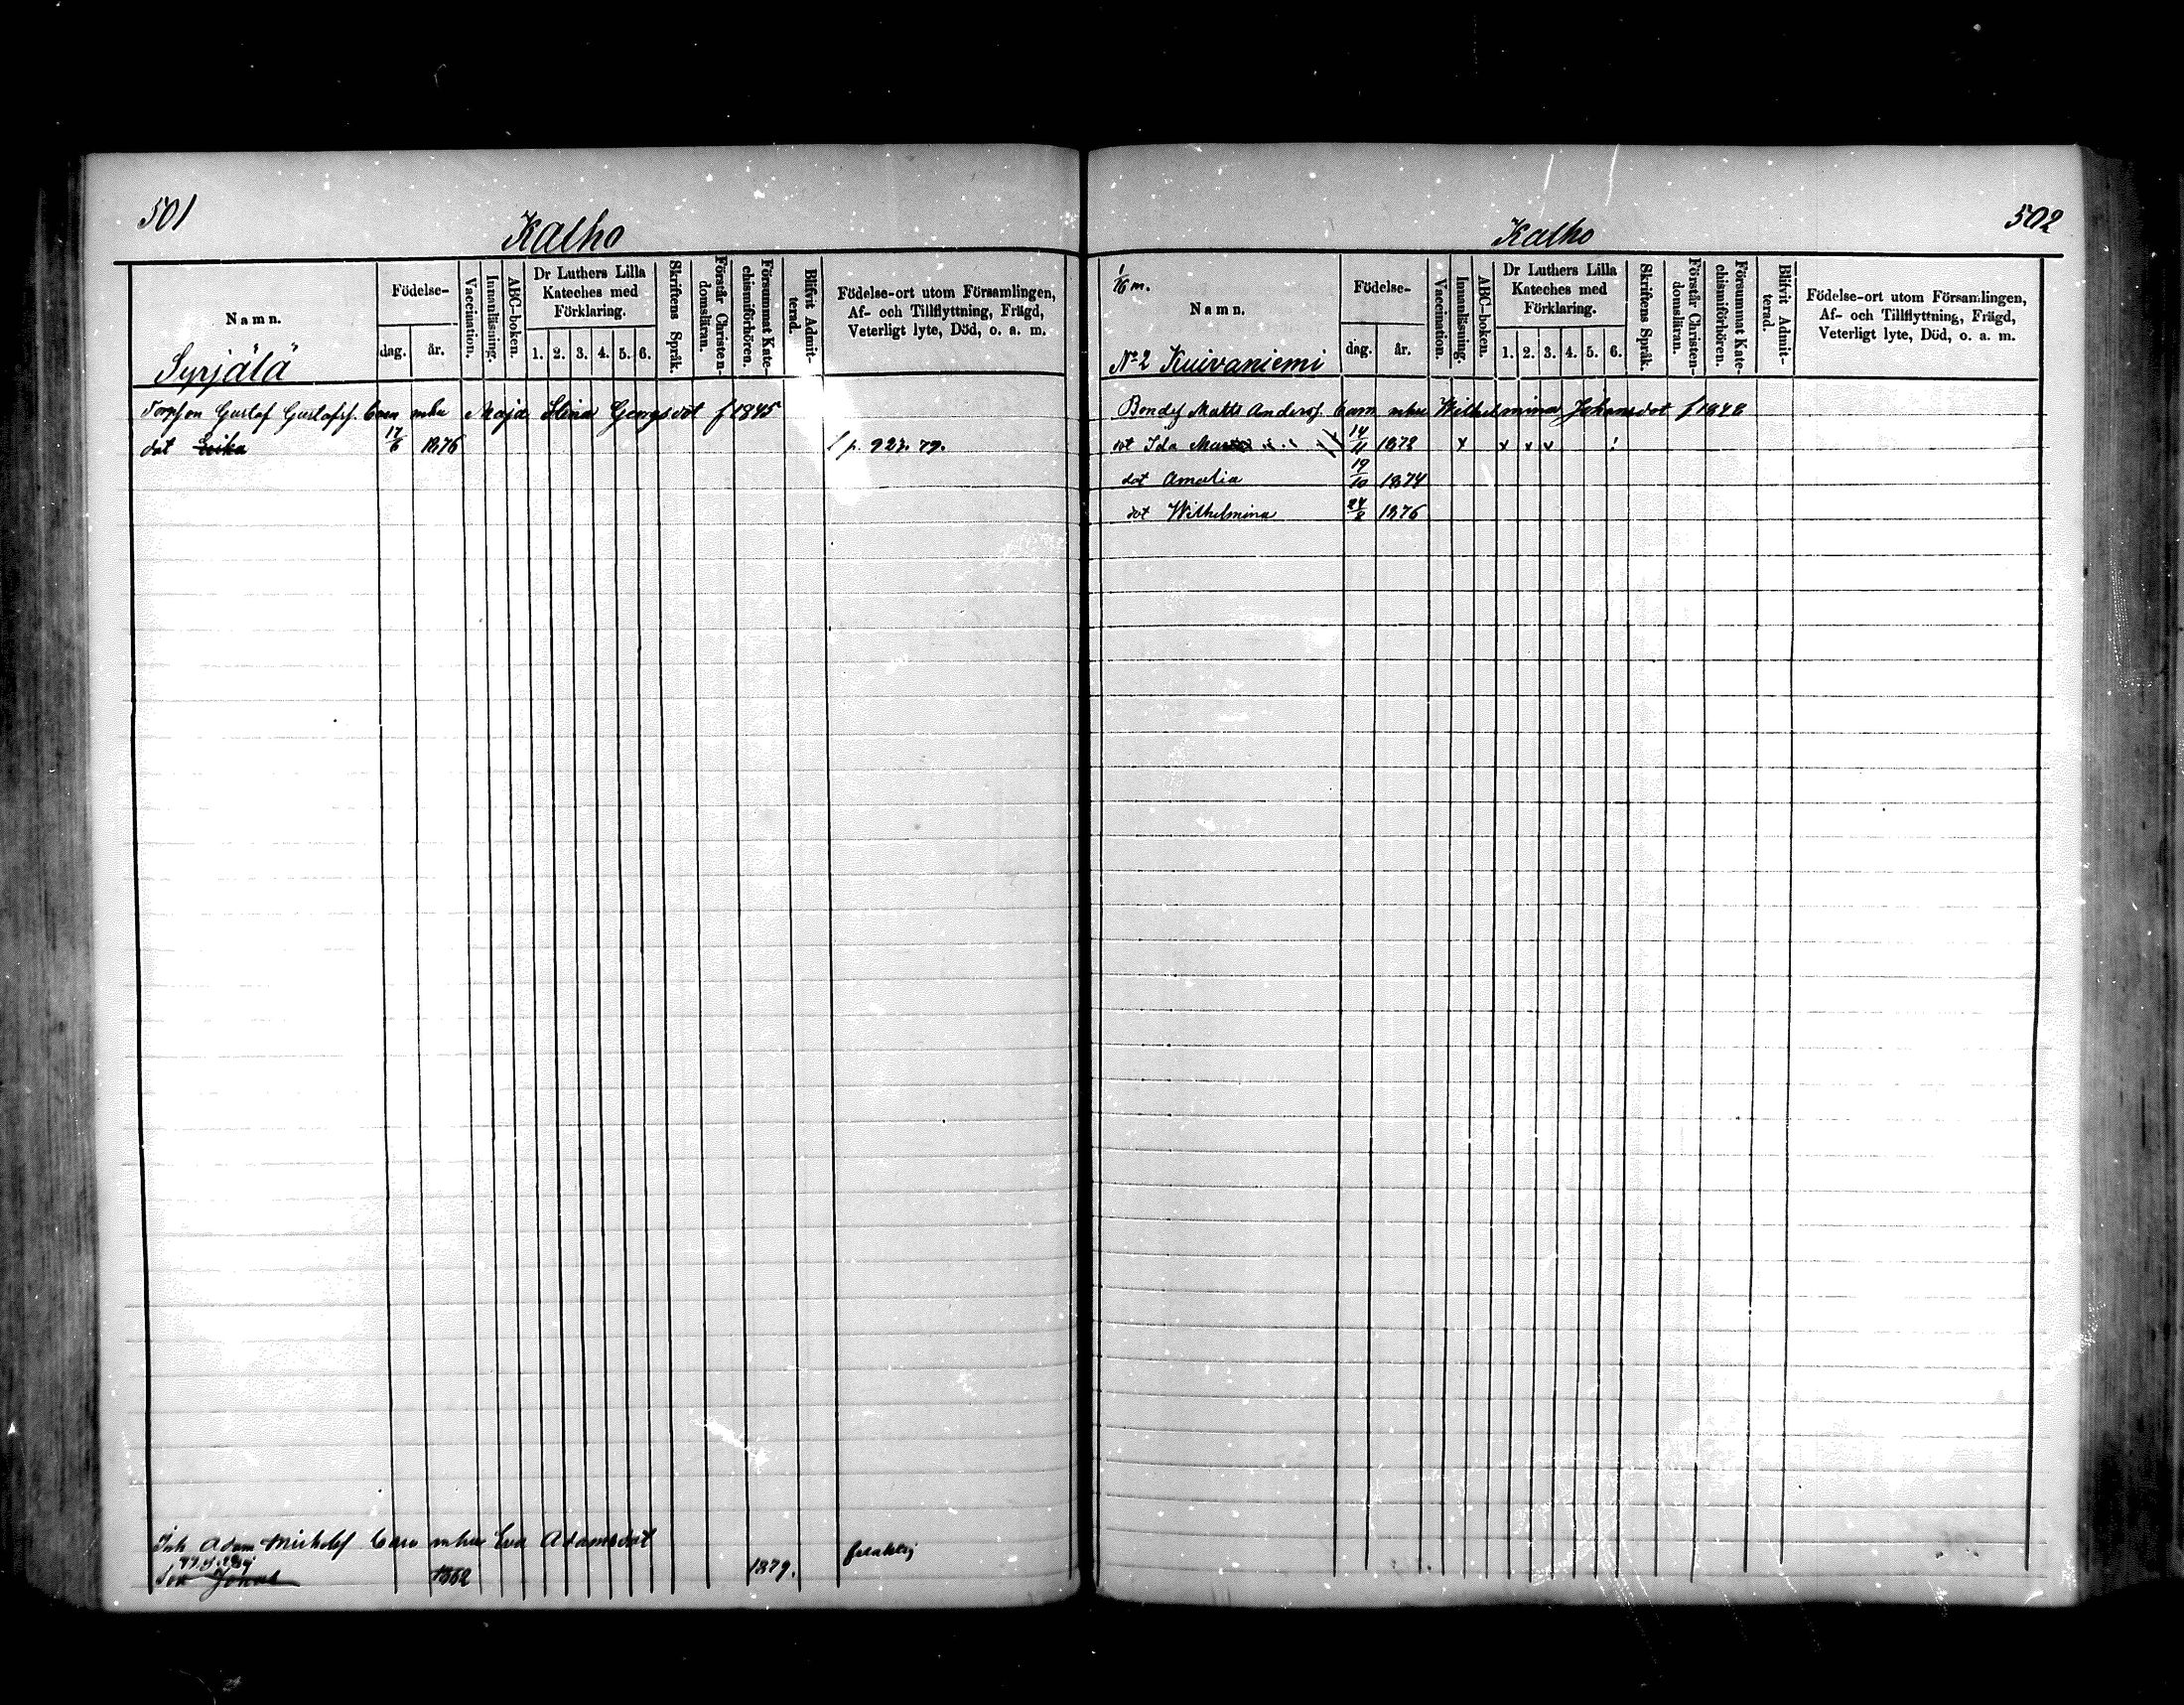 501
Kalho
Namn.
Födelse-
dag.
år.
Vaccination.
Innanläsning.
ABC-boken.
Dr Luthers Lilla
Kateches med
Förklaring.
1. 2. 3. 4. 5. 6.
Skriftens Språk.
Förstår Christen-
domsläran.
Försummat Kate-
chismiförhören.
Blifvit Admit-
terad.
Födelse-ort utom Församlingen,
Af- och Tillflyttning, Frägd,
Veterligt lyte, Död, o. a. m.
Syrjälä
Gustaf Gustafss. barn mhu Maja Stina Georgsdot f 1845
dot Erika 17/6 1876 p. 923. 79.
Inh Adam barn mhu Eva Adamsdot
Son Johan 1862 1879.
502
Kalho
1/6 m.
Namn.
Födelse-
dag.
år.
Vaccination.
Innanläsning.
ABC-boken.
Dr Luthers Lilla
Kateches med
Förklaring.
1. 2. 3. 4. 5. 6.
Skriftens Språk.
Förstår Christen-
domsläran.
Försummat Kate-
chismiförhören.
Blifvit Admit-
terad.
Födelse-ort utom Församlingen,
Af- och Tillflyttning, Frägd,
Veterligt lyte, Död, o. a. m.
No 2 Kuivaniemi
Bondes Matts Anderss. barn mhu Wilhelmina Johansdot f 1848
dot Ida 14/11 1872 x x x x
dot Amalia 19/10 1874
dot Wilhelmina 24/8 1876